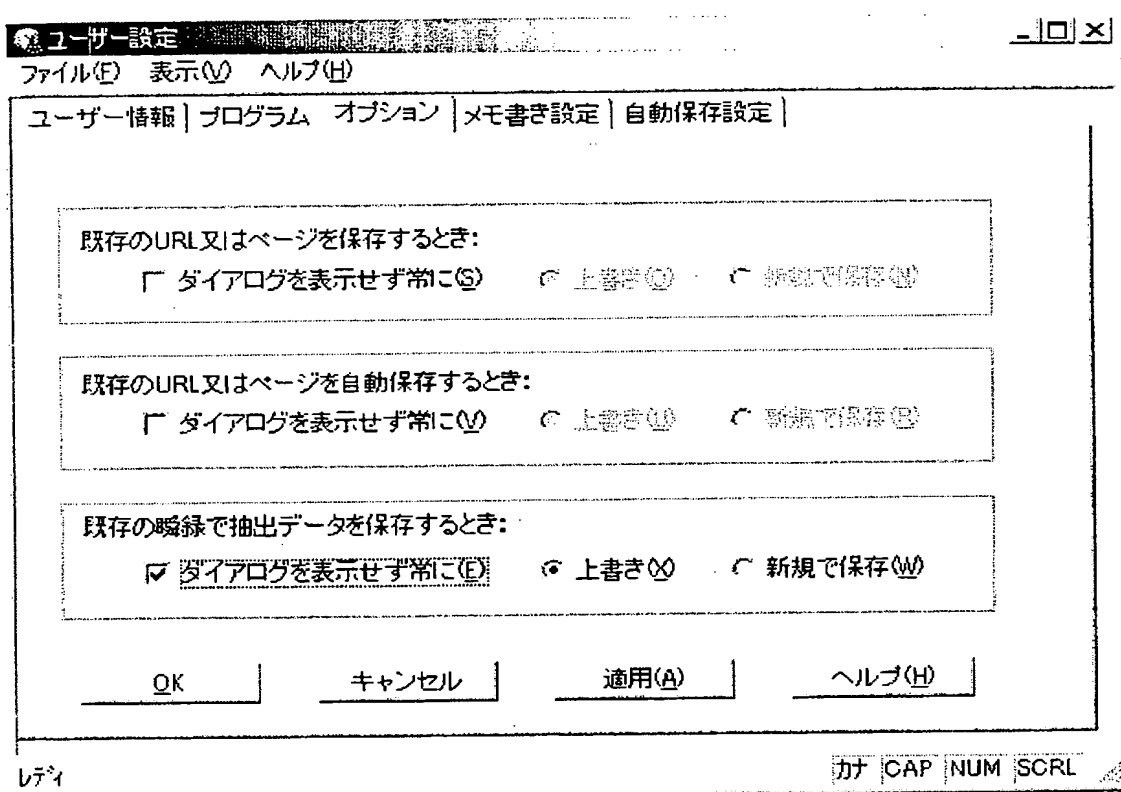 ユーザー設定
ファイル(F) 表示(V) ヘルプ(H)
ユーザー情報 プログラム オプション メモ書き設定 自動保存設定
既存のURL又はページを保存するとき:
ダイアログを表示せず常に(S) 上書き(O) 新規で保存(N)
既存のURL又はページを自動保存するとき:
ダイアログを表示せず常に(V) 上書き(U) 新規で保存(R)
既存の瞬録で抽出データを保存するとき:
ダイアログを表示せず常に(E) 上書き(X) 新規で保存(W)
OK キャンセル 適用(A) ヘルプ(H)
レディ カナ CAP NUM SCRL